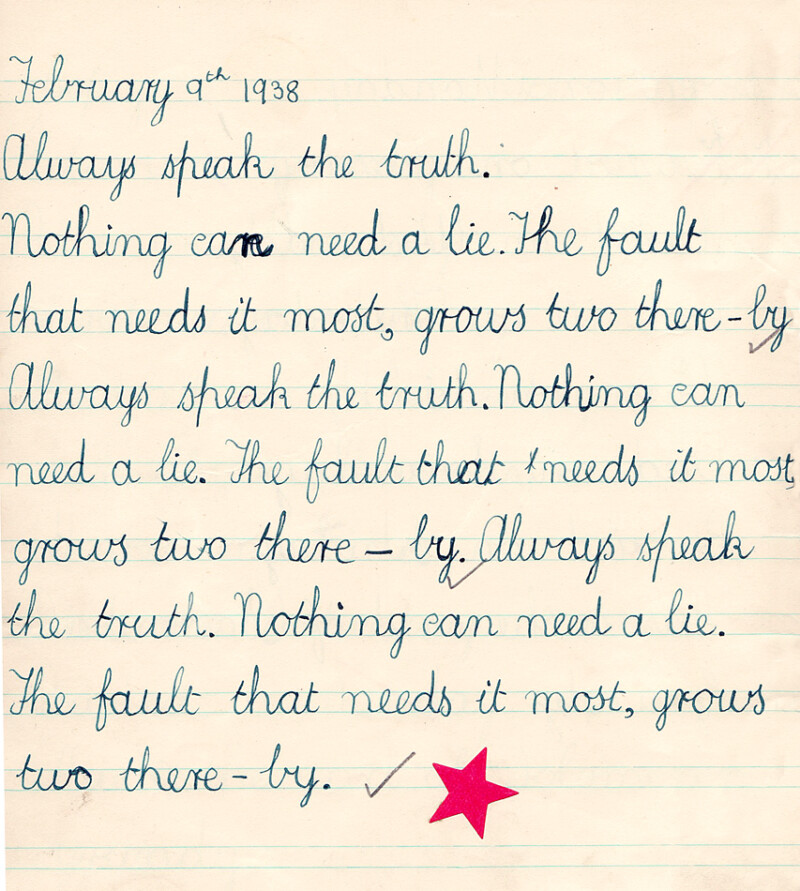 February 9th 1938
Always speak the truth.
Nothing can need a lie. The fault
that needs it most, grows two there-by
Always speak the truth. Nothing can
need a lie. The fault that needs it most,
grows two there - by. Always speak
the truth. Nothing can need a lie.
The fault that needs it most, grows
two there-by.